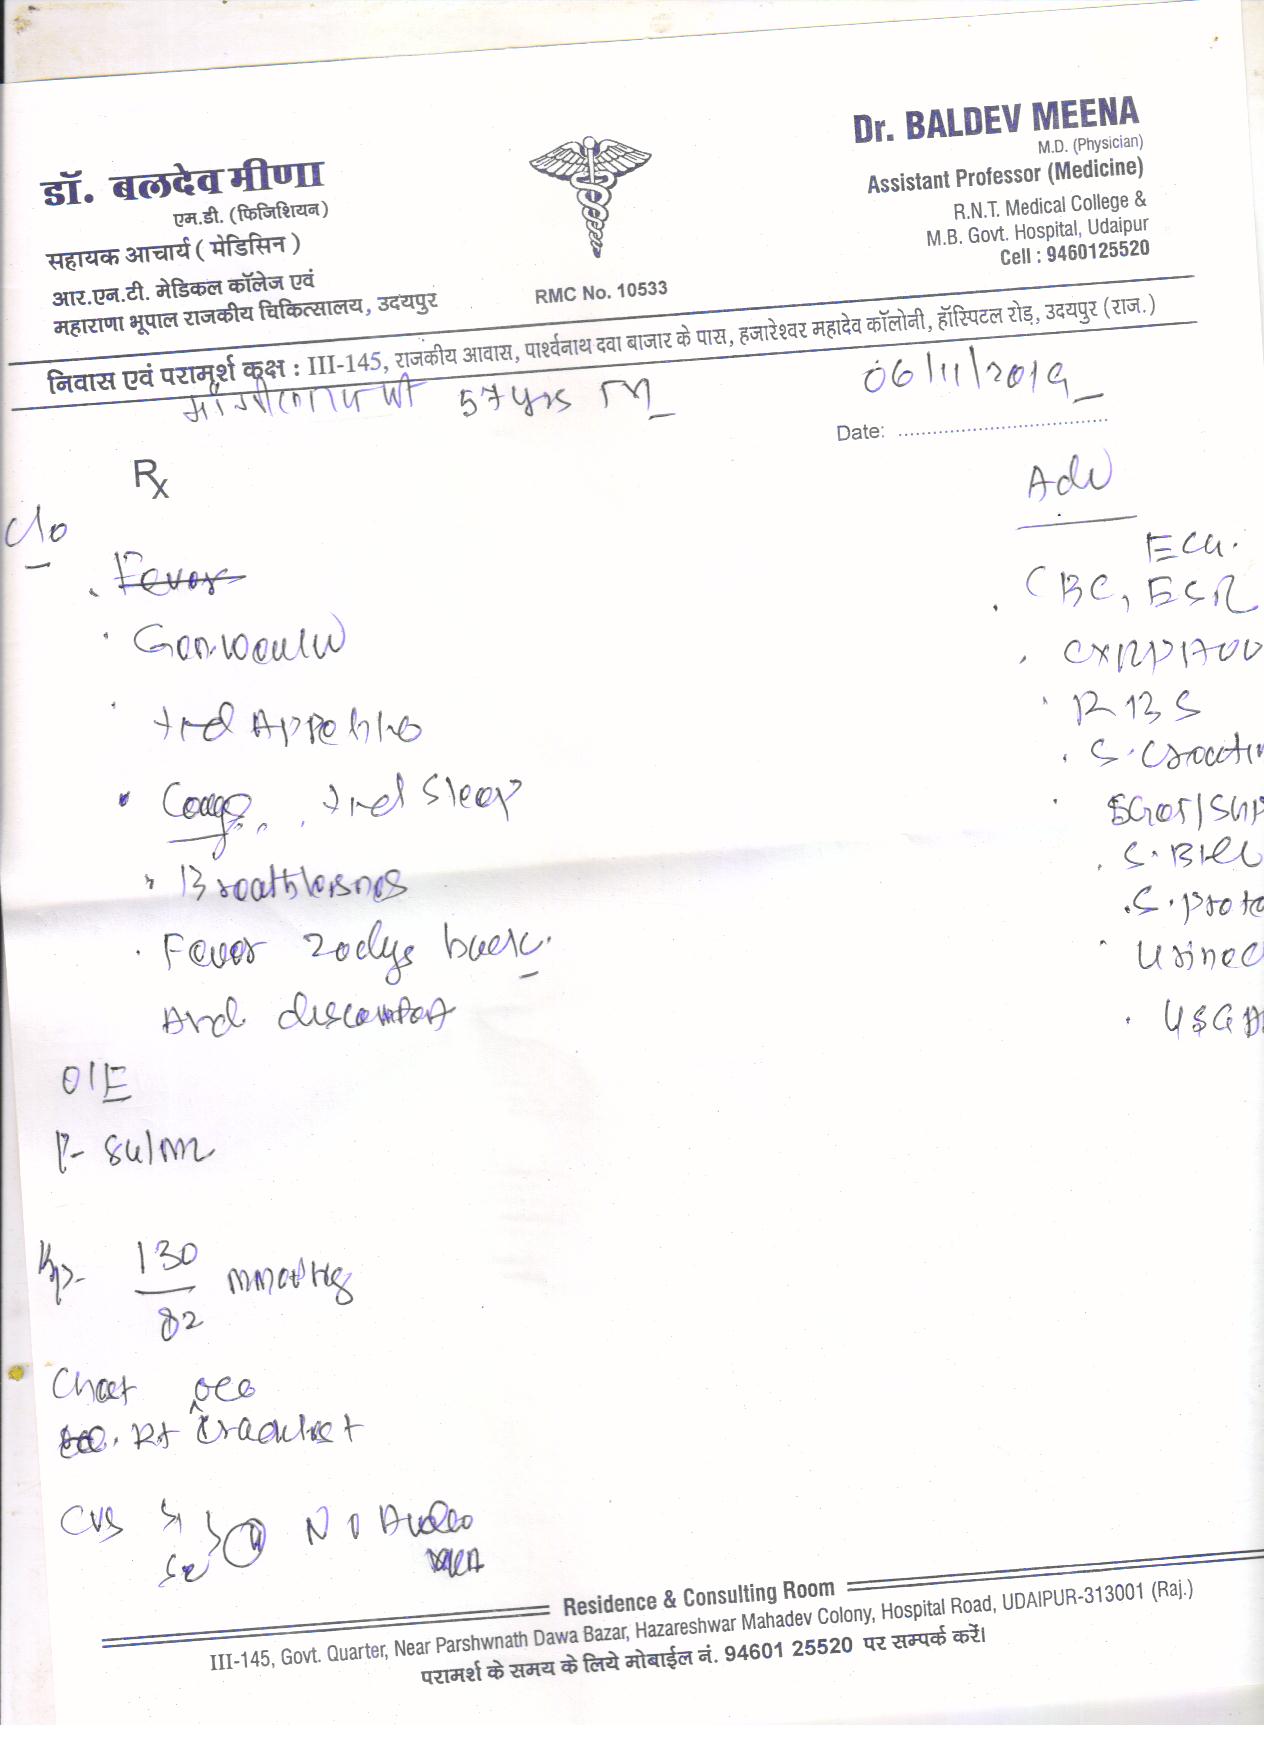 डॉ. बलदेव मीणा
एम.डी. (फिजिशियन)
सहायक आचार्य ( मेडिसिन )
आर.एन.टी. मेडिकल कॉलेज एवं
महाराणा भूपाल राजकीय चिकित्सालय, उदयपुर
RMC No. 10533
Dr. BALDEV MEENA
M.D. (Physician)
Assistant Professor (Medicine)
R.N.T. Medical College &
M.B. Govt. Hospital, Udaipur
Cell : 9460125520
निवास एवं परामर्श कक्ष : III-145, राजकीय आवास, पार्श्वनाथ दवा बाजार के पास, हजारेश्वर महादेव कॉलोनी, हॉस्पिटल रोड़, उदयपुर (राज.)
57 yrs M
06/11/2019
Date:
Rx
C/o
Fever
Gen. weakn
Appetite
Cough, Sleep
Breathlessness
Fever 20 dys back.
Abd discomfort
O/E
P- 84/m
Bp- 130/82 mmofHg
Chest
Rt
CVS S1 S2 N
Adv
ECG.
CBC, ESR
CXR PA
RBS
S. Creatin
SGOT/SGP
S. Bili
S. prote
Urine C
USG A
Residence & Consulting Room
III-145, Govt. Quarter, Near Parshwnath Dawa Bazar, Hazareshwar Mahadev Colony, Hospital Road, UDAIPUR-313001 (Raj.)
परामर्श के समय के लिये मोबाईल नं. 94601 25520 पर सम्पर्क करें।